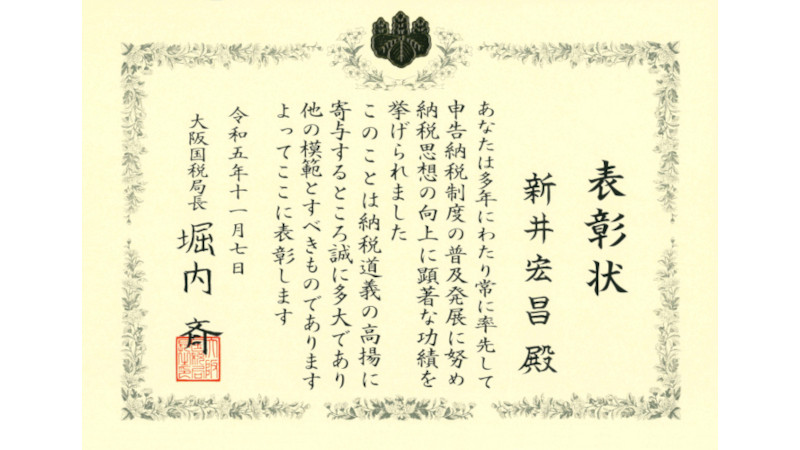 表彰状
新井宏昌 殿
あなたは多年にわたり常に率先して
申告納税制度の普及発展に努め
納税思想の向上に顕著な功績を
挙げられました
このことは納税道義の高揚に
寄与するところ誠に多大であり
他の模範とすべきものであります
よってここに表彰します
令和五年十一月七日
大阪国税局長 堀内 斉